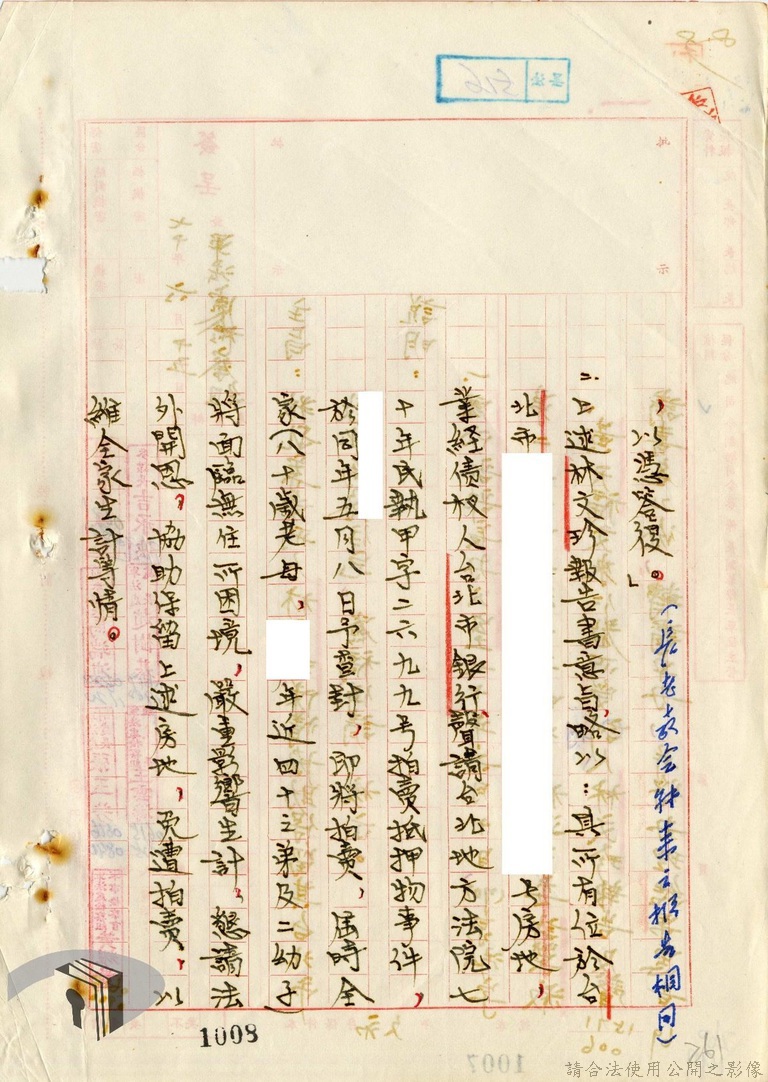 ，以憑答復。」
（長老教会転来之报告相同）
二、上述林文珍報告書意旨略以：其所有位於台
北市
号房地，
業経债权人台北市銀行聲請台北地方法院七
十年民執甲字二六九九号拍賣抵押物事件，
於同年五月八日予查封，即將拍賣，屆時全
家（八十歲老母，
年近四十之弟及二幼子
將面臨無住所困境，嚴重影響生計。懇請法
外開恩，協助保留上述房地，免遭拍賣，以
維全家生計等情。
1008
請合法使用公開之影像